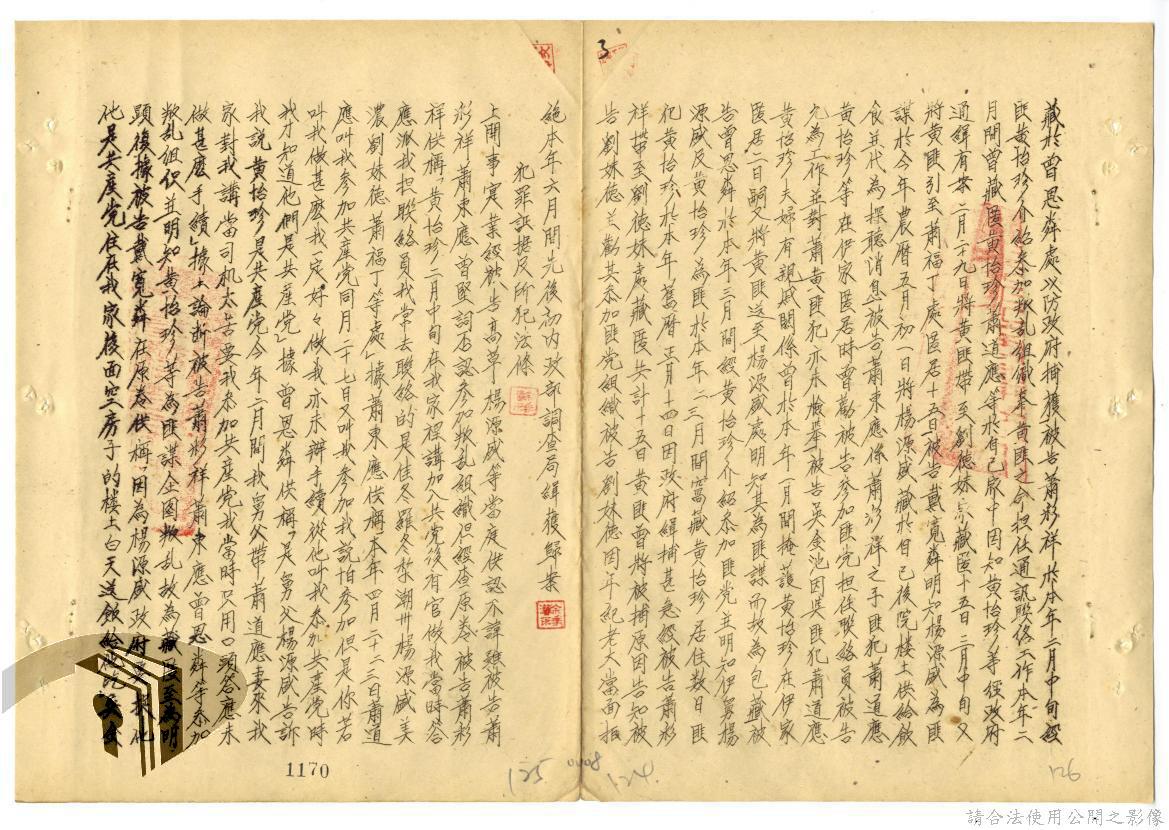 藏於曾思粦處以防政府捕獲被告蕭彩祥於本年二月中旬經
匪黃怡珍介紹參加叛乱組織奉黃匪之令担任通訊聯絡工作本年二
月間曾藏匿黃怡珍蕭道應等於自己家中因知黃怡珍等經政府
通緝有案二月二十九日將黃匪帶至劉德妹家藏匿十五日三月中旬又
將黃匪引至蕭福丁處匿居十五日被告戴寬粦明知楊源盛為匪
諜於今年農曆五月初一日將楊源盛藏於自己後院楼土供給飲
食並代為探聽消息被告蕭東應係蕭彩祥之子匪犯蕭道應
黃怡珍等在伊家匿居時曾勸被告參加匪党担任聯絡員被告
允為工作並對蕭黃匪犯亦未檢舉被告吳金池因與匪犯蕭道應
黃怡珍夫婦有親戚關係曾於本年一月間掩護黃怡珍在伊家
匿居二日嗣又將黃匪送至楊源盛處明知其為匪諜而故為包藏被
告曾思粦於本年三月間經黃怡珍介紹參加匪党並明知伊舅楊
源盛及黃怡珍為匪於本年二三月間窩藏黃怡珍居住数日匪
犯黃怡珍於本年舊曆正月十四日因政府緝捕甚急經被告蕭彩
祥帶至劉德妹處藏匿共計十五日黃匪曾將被捕原因告知被
告劉妹德並勸其參加匪党組織被告劉妹德因年紀老大當面拒
3
絶本年六月間先後初內政部調查局緝獲歸案
犯罪証據及所犯法條
上開事實業經被告高草楊源盛等當庭供認不諱雖被告蕭
彩祥蕭東應曾堅詞否認參加叛乱組織但經查原卷被告蕭彩
祥供稱「黃怡珍二月中旬在我家裡講加入共党後有官做我當時答
應派我担聯絡員我常去聯絡的是佳冬羅冬黎潮州楊源盛美
濃劉妹德蕭福丁等處」據蕭東應供稱「本年四月二十三日蕭道
應叫我參加共産党同月二十七日又叫我參加我說怕參加但是你若
叫我做甚麽我一定好々做我亦未辦手續從他叫我參加共産党時
我才知道他們是共産党」據曾思粦供稱「是舅父楊源盛告訴
我說黃怡珍是共産党今年二月間我舅父帶蕭道應妻來我
家對我講當司机太苦要我參加共産党我當時只用口頭答應未
做甚麽手續」據上論断被告蕭彩祥蕭東應曾思粦等參加
叛乱組织並明知黃怡珍等為匪諜企圖叛乱故為藏匿至為明
顕後據被告戴寬粦在原卷供稱「因為楊源盛政府要捉他
他是共産党住在我家後面空房子的楼土白天送飯給他吃
1170
125
0408
124
126
請合法使用公開之影像